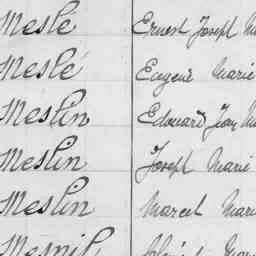 Mesle Ernest Joseph
Meslé Eugene Marie
Meslin Edouard Jean
Meslin Joseph Marie
Meslin Marcel Mari
Mesnil